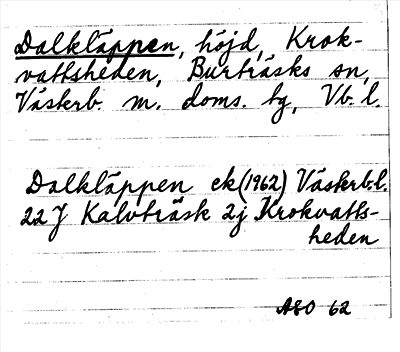 Dalkläppen, höjd, Krok-
vattsheden, Burträsks sn,
Västerb. m. doms. tg, Vb. l.
Dalkläppen ek (1962) Västerb.l.
22J Kalvträsk 2j Krokvatts-
heden
ASO 62